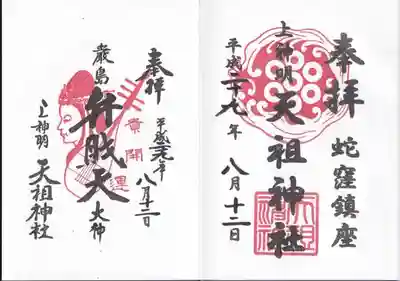 奉拝
蛇窪鎮座
上神明
天祖神社
平成二十九年
八月十二日
奉拝
平成二九年
八月十二日
厳島
弁財天
大神
開運
上神明
天祖神社